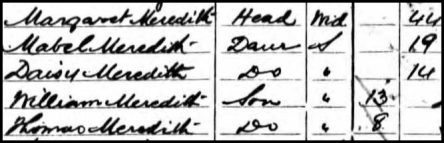 Margaret Meredith Head Wid 44
Mabel Meredith Daur S 19
Daisy Meredith Do " 14
William Meredith Son " 13
Thomas Meredith Do " 8